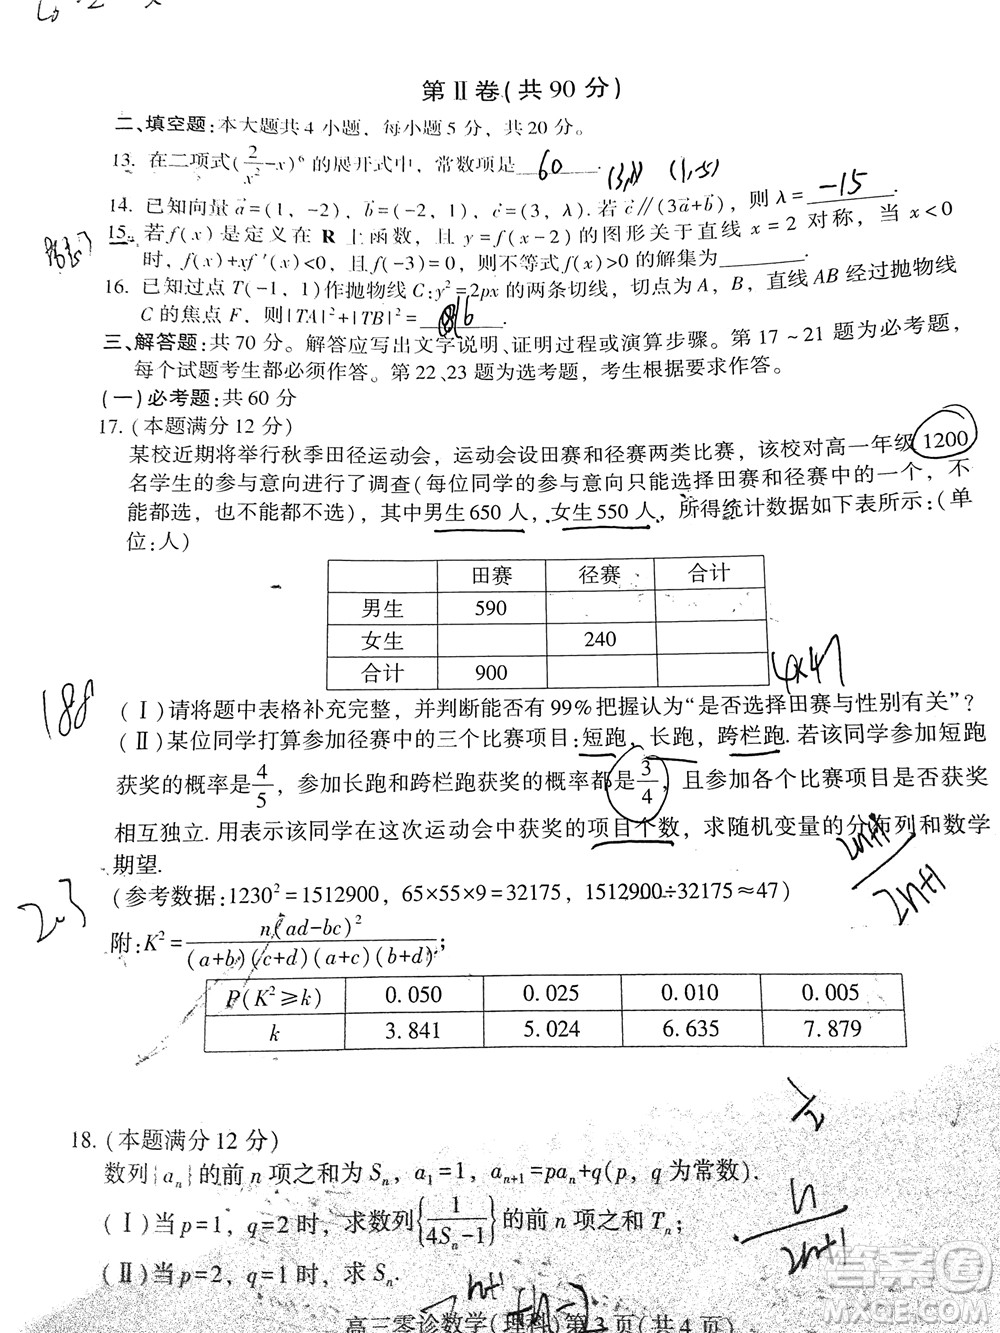 第Ⅱ卷(共90分)
二、填空题:本大题共4小题，每小题5分，共20分。
13. 在二项式(2/x²-x)⁶的展开式中，常数项是 60 .
(1,-5)
14. 已知向量a=(1, -2), b=(-2, 1), c=(3, λ). 若c∥(3a+b), 则λ= -15 .
15. 若f(x)是定义在R上函数，且y=f(x-2)的图形关于直线x=2对称，当x<0
时，f(x)+xf′(x)<0，且f(-3)=0，则不等式f(x)>0的解集为________.
16. 已知过点T(-1, 1)作抛物线C:y²=2px的两条切线，切点为A、B，直线AB经过抛物线
C的焦点F，则|TA|²+|TB|²=______.
三、解答题:共70分。解答应写出文字说明、证明过程或演算步骤。第17~21题为必考题，
每个试题考生都必须作答。第22、23题为选考题，考生根据要求作答。
(一)必考题:共60分
17. (本题满分12分)
某校近期将举行秋季田径运动会，运动会设田赛和径赛两类比赛，该校对高一年级1200
名学生的参与意向进行了调查(每位同学的参与意向只能选择田赛和径赛中的一个，不
能都选，也不能都不选)，其中男生650人，女生550人，所得统计数据如下表所示:(单
位:人)
田赛 径赛 合计
男生 590
女生 240
合计 900
4×47
188
(Ⅰ)请将题中表格补充完整，并判断能否有99%把握认为“是否选择田赛与性别有关”?
(Ⅱ)某位同学打算参加径赛中的三个比赛项目:短跑，长跑，跨栏跑. 若该同学参加短跑
获奖的概率是4/5，参加长跑和跨栏跑获奖的概率都是3/4，且参加各个比赛项目是否获奖
相互独立. 用表示该同学在这次运动会中获奖的项目个数，求随机变量的分布列和数学
期望.
2n+1
(参考数据:1230²=1512900, 65×55×9=32175, 1512900÷32175≈47)
附:K²=n(ad-bc)²/(a+b)(c+d)(a+c)(b+d);
P(K²≥k) 0.050 0.025 0.010 0.005
k 3.841 5.024 6.635 7.879
18. (本题满分12分)
数列{aₙ}的前n项之和为Sₙ, a₁=1, aₙ₊₁=paₙ+q(p, q为常数).
(Ⅰ)当p=1, q=2时，求数列{1/(4Sₙ-1)}的前n项之和Tₙ;
n/2n+1
(Ⅱ)当p=2, q=1时，求Sₙ.
高三零诊数学(理科)第3页(共4页)
答案圈